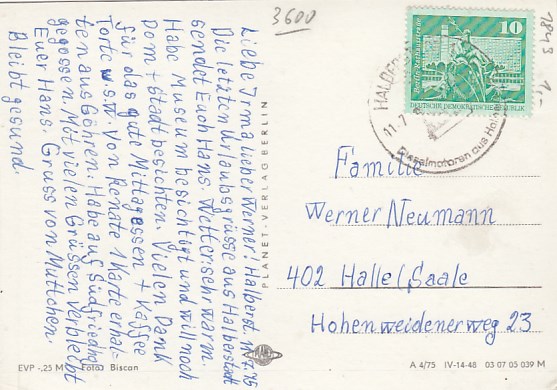 3600
1843
1,-
Liebe Irma lieber Werner! Halberst 11.7.75
Die letzten Urlaubsgrüsse aus Halberstadt
sendet Euch Hans. Wetter sehr warm.
Habe Museum besichtigt und will noch
Dom + Stadt besichten. Vielen Dank
für das gute Mittagessen + Kaffee
Torte u.s.w. Von Renate 1 Karte erhal=
ten aus Göhren. Habe auf Südfriedhof
gegossen. Mit vielen Grüssen verbleibt
Euer Hans. Gruss von Muttchen.
Bleibt gesund.
PLANET-VERLAG BERLIN
Berlin, Rathausstraße
10
DEUTSCHE DEMOKRATISCHE REPUBLIK
HALBER
11.7.
Dieselmotoren aus Halb
Familie
Werner Neumann
402 Halle/Saale
Hohenweidenerweg 23
EVP -,25 M Foto: Biscan
PLANET
A 4/75 IV-14-48 03 07 05 039 M